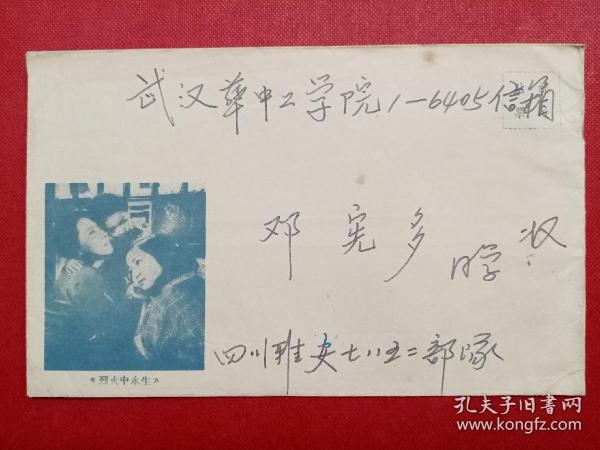 武汉华中工学院1-6405信箱
邓宪多同学收
四川雅安七八五二部队
《烈火中永生》
孔夫子旧书网
www.kongfz.com